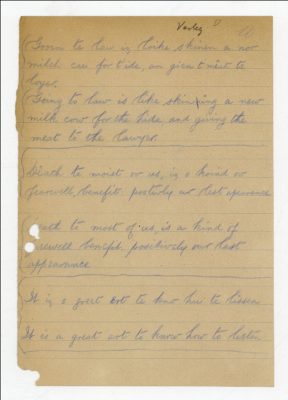 Varley ?
Gooin to law iz loike skinen a noo
milch cow for t'ide, an givin t'meit to
loyer.
Going to law is like skinning a new
milk cow for the hide, and giving the
meat to the lawyer.
Death to moist or us, iz a koind or
fearwell, benefit positivly our last apearence
Death to most of us, is a kind of
farewell benefit, positively our last
appearance
It iz a greet aot to knaw hoo to lissen
It is a great art to know how to listen